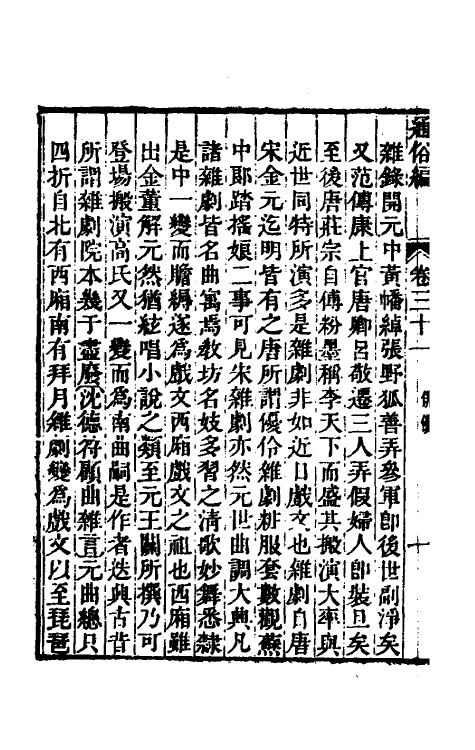 通俗編　卷三十一　俳優　十
雜錄開元中黃幡綽張野狐善弄參軍即後世副淨矣
又范傳康上官唐卿呂敬遷三人弄假婦人即裝旦矣
至後唐莊宗自傅粉墨稱李天下而盛其搬演大率與
近世同特所演多是雜劇非如近日戲文也雜劇自唐
宋金元迄明皆有之唐所謂優伶雜劇粧服套數觀蘇
中郎踏搖娘二事可見宋雜劇亦然元世曲調大興凡
諸雜劇皆名曲寓焉教坊名妓多習之清歌妙舞悉隸
是中一變而贍縟遂為戲文西廂戲文之祖也西廂雖
出金董解元然猶絃唱小說之類至元王關所撰乃可
登場搬演高氏又一變而為南曲嗣是作者迭興古昔
所謂雜劇院本幾于盡廢沈德符顧曲雜言元曲總只
四折自北有西廂南有拜月雜劇變為戲文以至琵琶